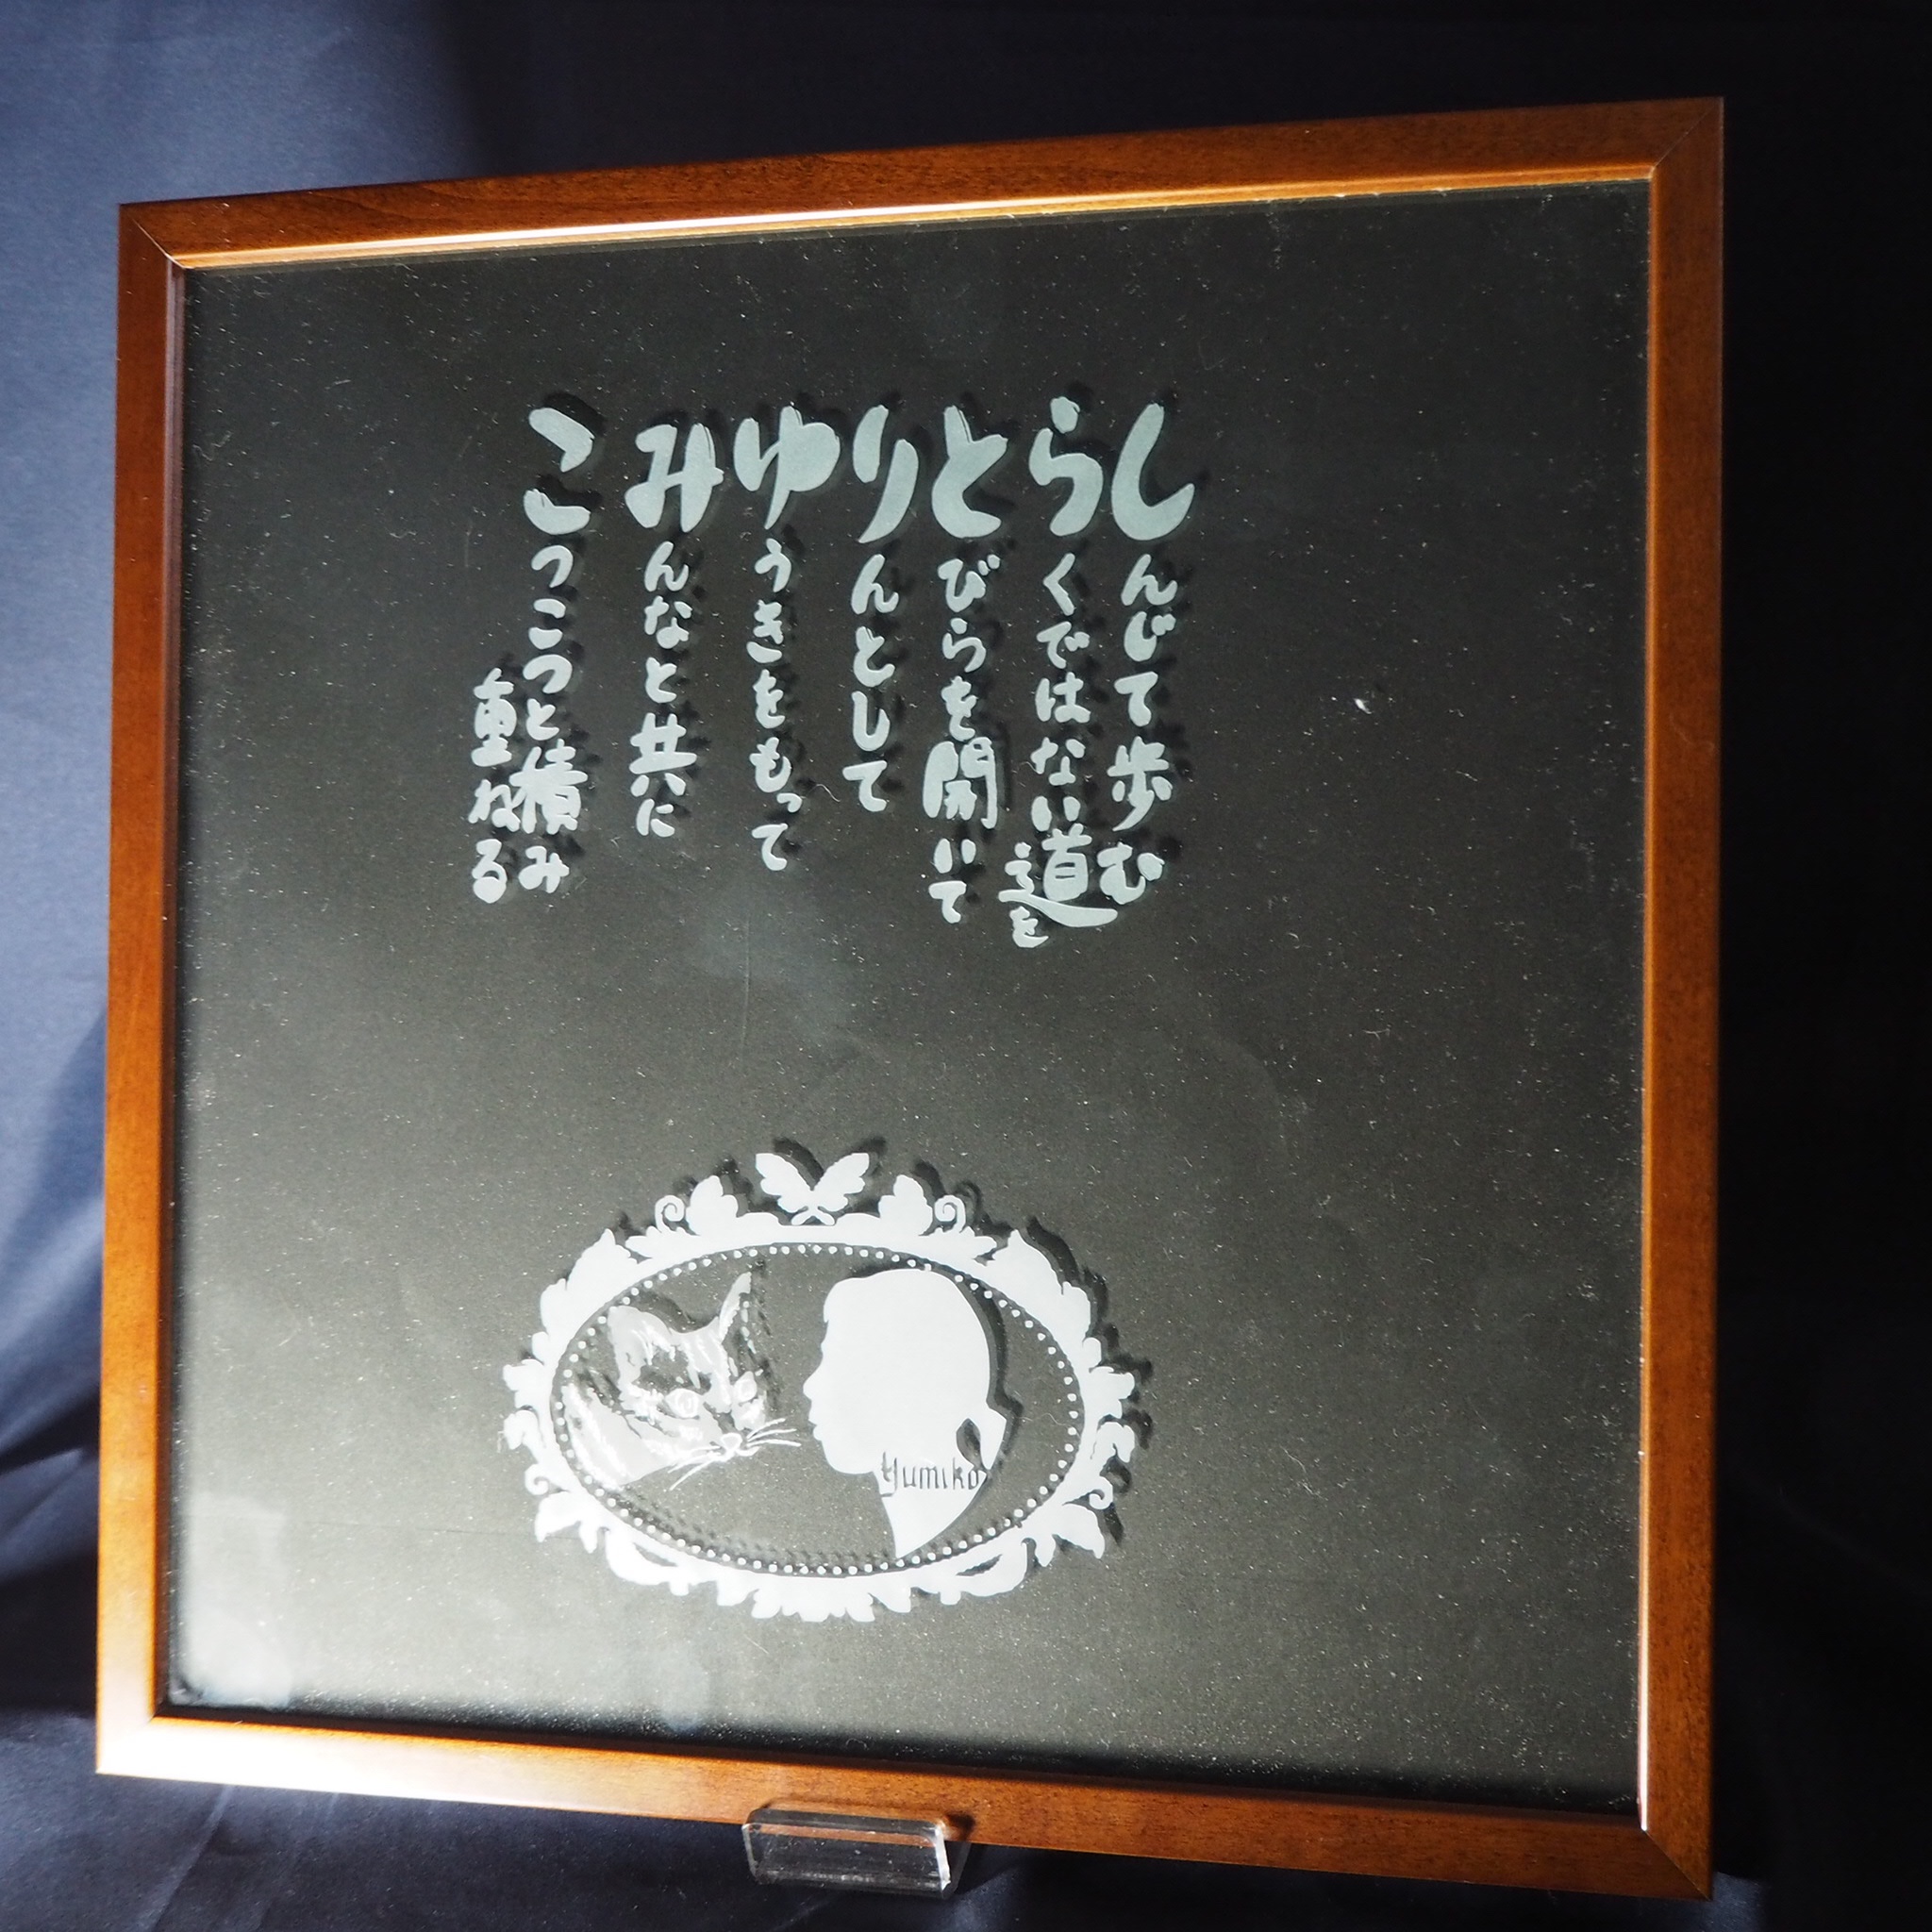 しんじて歩む
らくではない道を
とびらを開いて
りんとして
ゆうきをもって
みんなと共に
こつこつと積み
重ねる
Yumiko